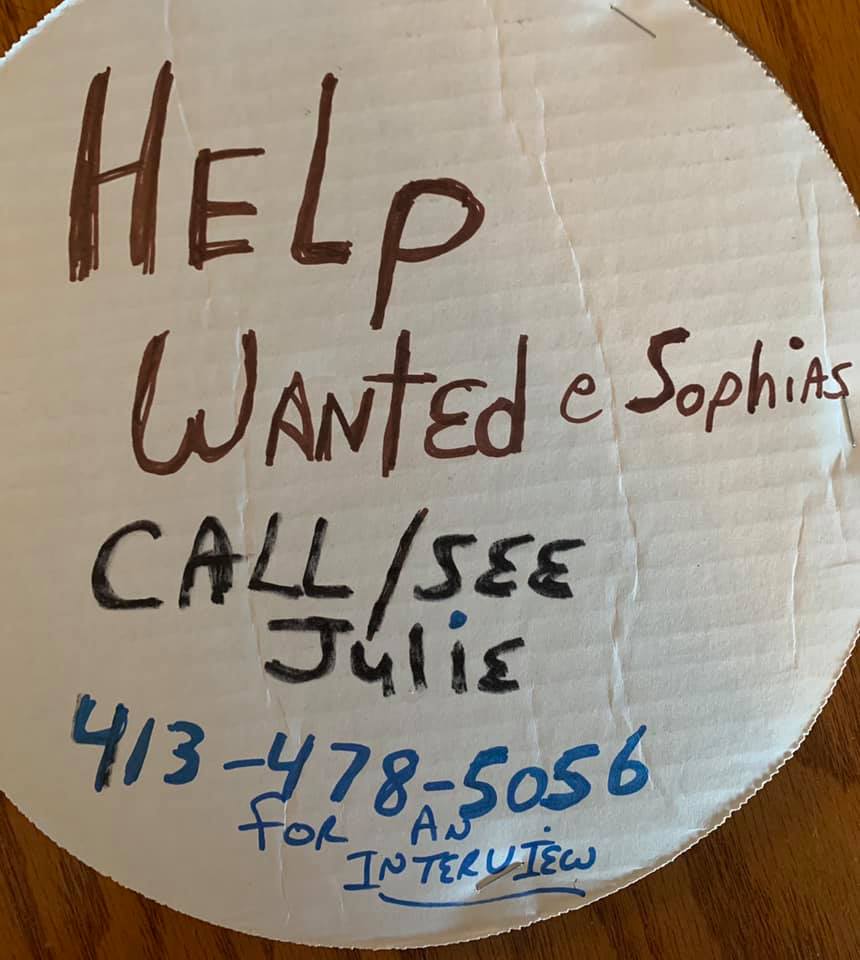 HELP
WANtEd e SophiAS
CALL/SEE
JuliE
413-478-5056
foR AN
INTERVIEW